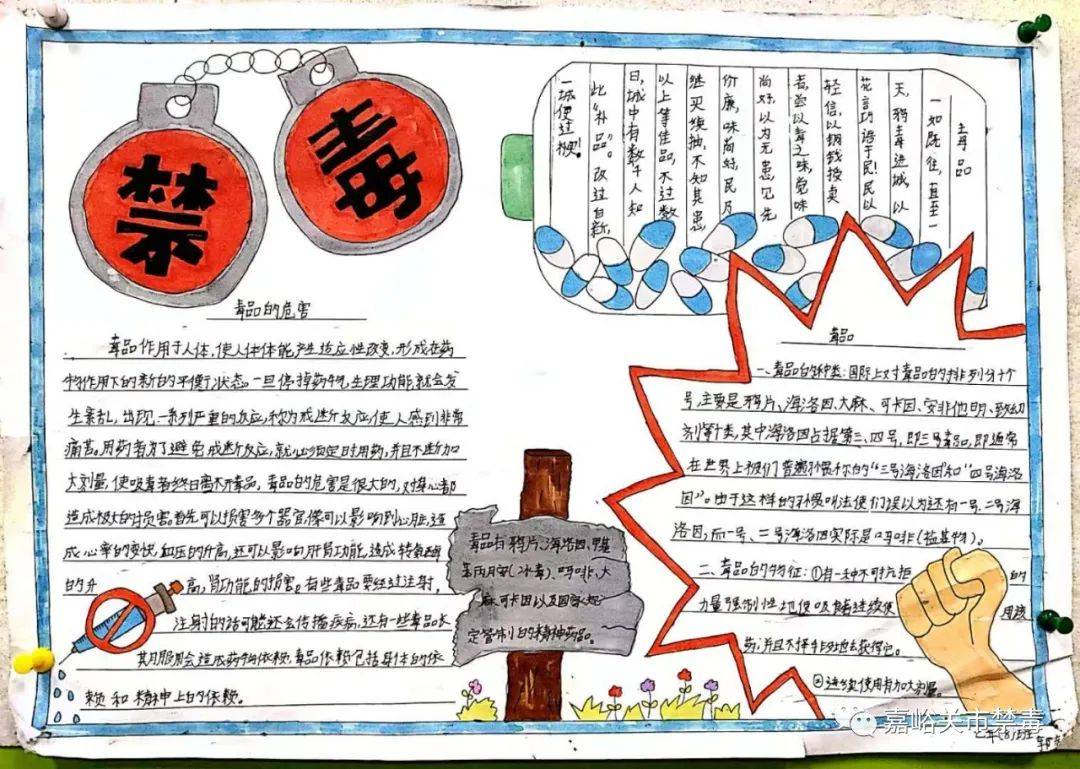 禁毒
毒品的危害
毒品作用于人体，使人体体能产生适应性改变，形成在药
物作用下的新的平衡状态。一旦停掉药物，生理功能就会发
生紊乱，出现一系列严重的反应，称为戒断反应，使人感到非常
痛苦。用药者为了避免戒断反应，就必须定时用药，并且不断加
大剂量，使吸毒者终日离不开毒品。毒品的危害是很大的，对身心都
造成极大的损害。首先可以损害多个器官，像可以影响到心脏，造
成心率的变快，血压的升高，还可以影响肝肾功能，造成转氨酶
的升高，肾功能的损害。有些毒品要经过注射，
注射的话可能还会传播疾病，还有一些毒品长
期服用会造成药物依赖，毒品依赖包括身体的依
赖和精神上的依赖。
毒品
一如既往，直至一
天，鸦毒进城，以
花言巧语于民！民以
轻信，以钢钱换卖
者，尝以毒之味，觉味
尚好，以为无患，见先
价廉，味尚好，民乃
继买续抽，不知其患
以上等佳品，不过数
日，城中有数千人知
此“补品”。改过自新，
一城便过梗！
毒品有鸦片、海洛因、甲基
苯丙胺(冰毒)、吗啡、大
麻、可卡因以及国家规
定管制的精神药品。
毒品
一、毒品的种类：国际上对毒品的排列分十个
号，主要是鸦片、海洛因、大麻、可卡因、安非他明、致幻
剂等十类，其中海洛因占据第三、四号，即三号毒品，即通常
在世界上被们普遍称的“三号海洛因和“四号海洛
因”。由于这样的称呼叫法使们误以为还有一号、二号海
洛因，而一号、二号海洛因实际是吗啡
二、毒品的特征：①有一种不可抗拒的
力量强制性地使吸食者连续使用该
药，并且不择手段地去获得它。
②连续使用有加大剂量。
嘉峪关市禁毒